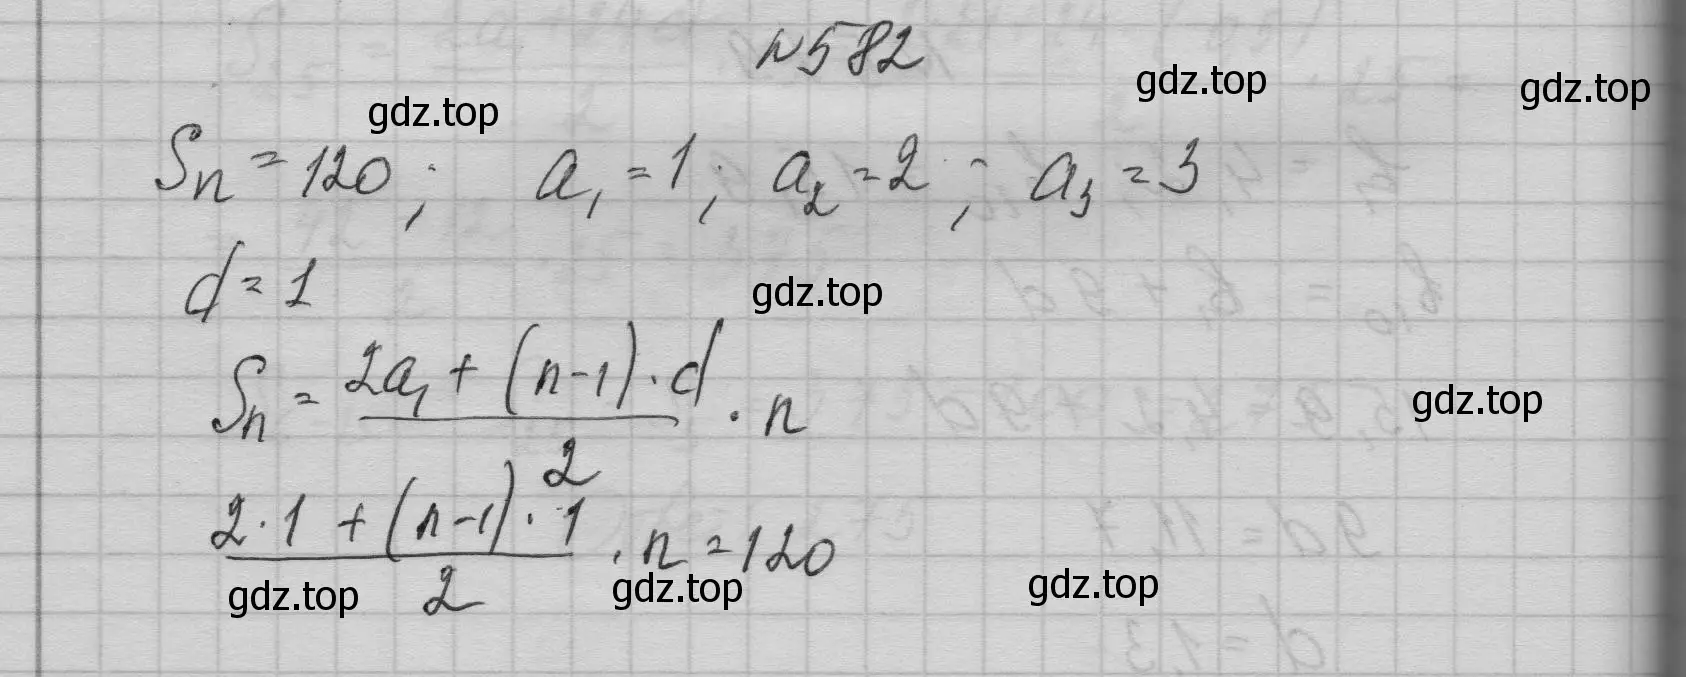 №582
gdz.top gdz.top gdz.top
Sn = 120; a₁ = 1; a₂ = 2; a₃ = 3
d = 1
gdz.top
Sn = (2a₁ + (n-1)·d)/2 · n
gdz.top
(2·1 + (n-1)·1)/2 · n = 120
gdz.top gdz.top gdz.top